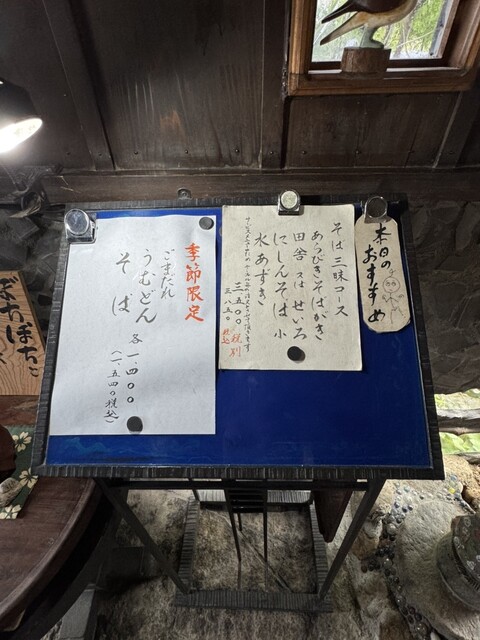 本日の
おすすめ
そば三昧コース
あらびきそばがき
田舎又はせいろ
にしんそば小
水あずき
三五〇〇 税別
三八五〇 税込
季節限定
ごまだれ
うむどん
そば
各一、四〇〇
(一、五四〇税込)
ぼちぼちこ